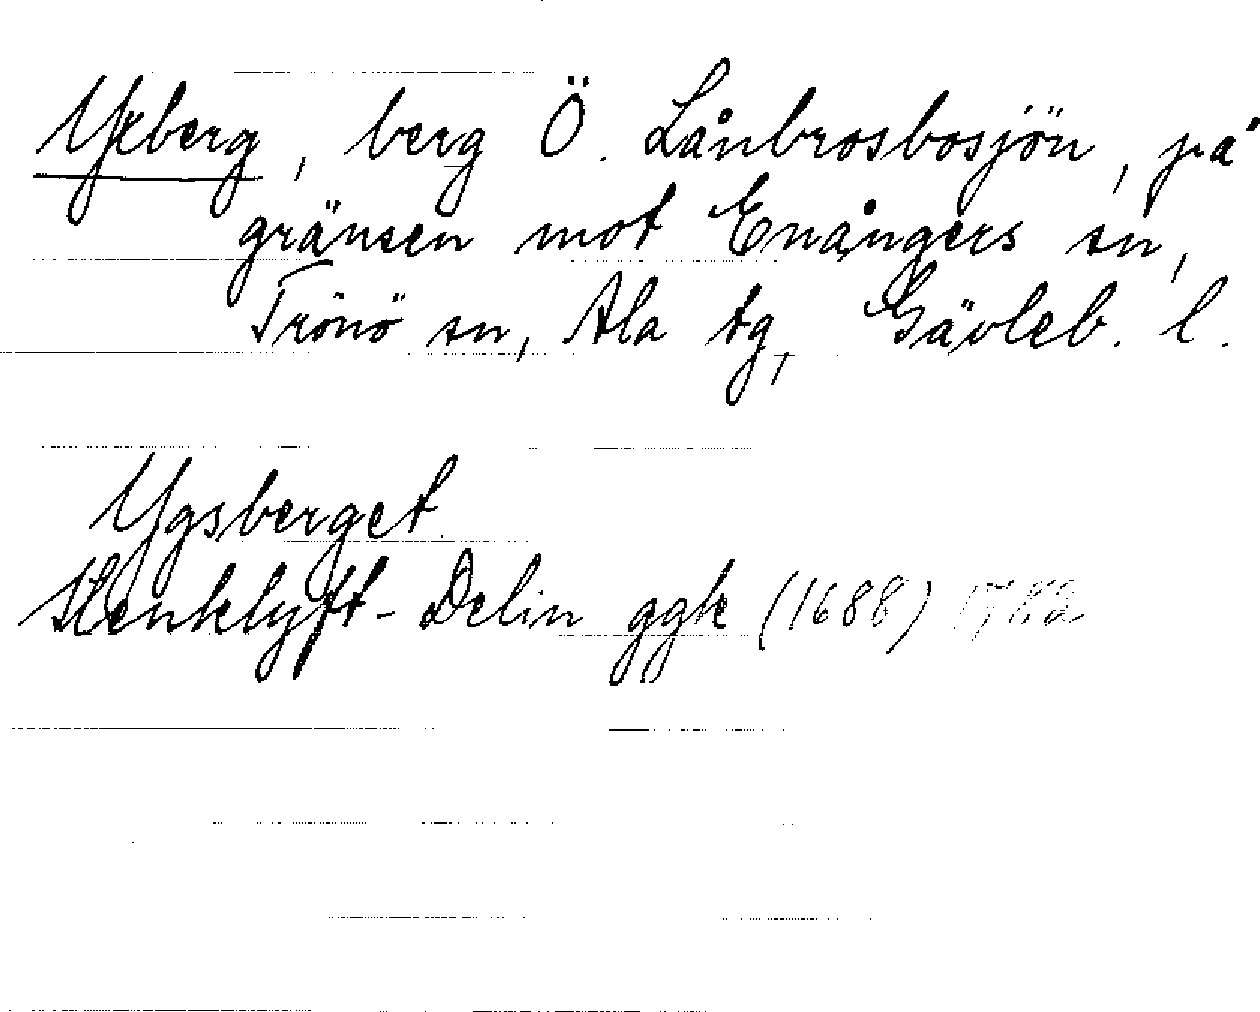 Yxberg, berg Ö. Lånbrosbosjön, på
gränsen mot Enångers sn,
Trönö sn, Ala tg, Gävleb. l.
Ygsberget
Stenklyft - Delin ggk (1688) 1782